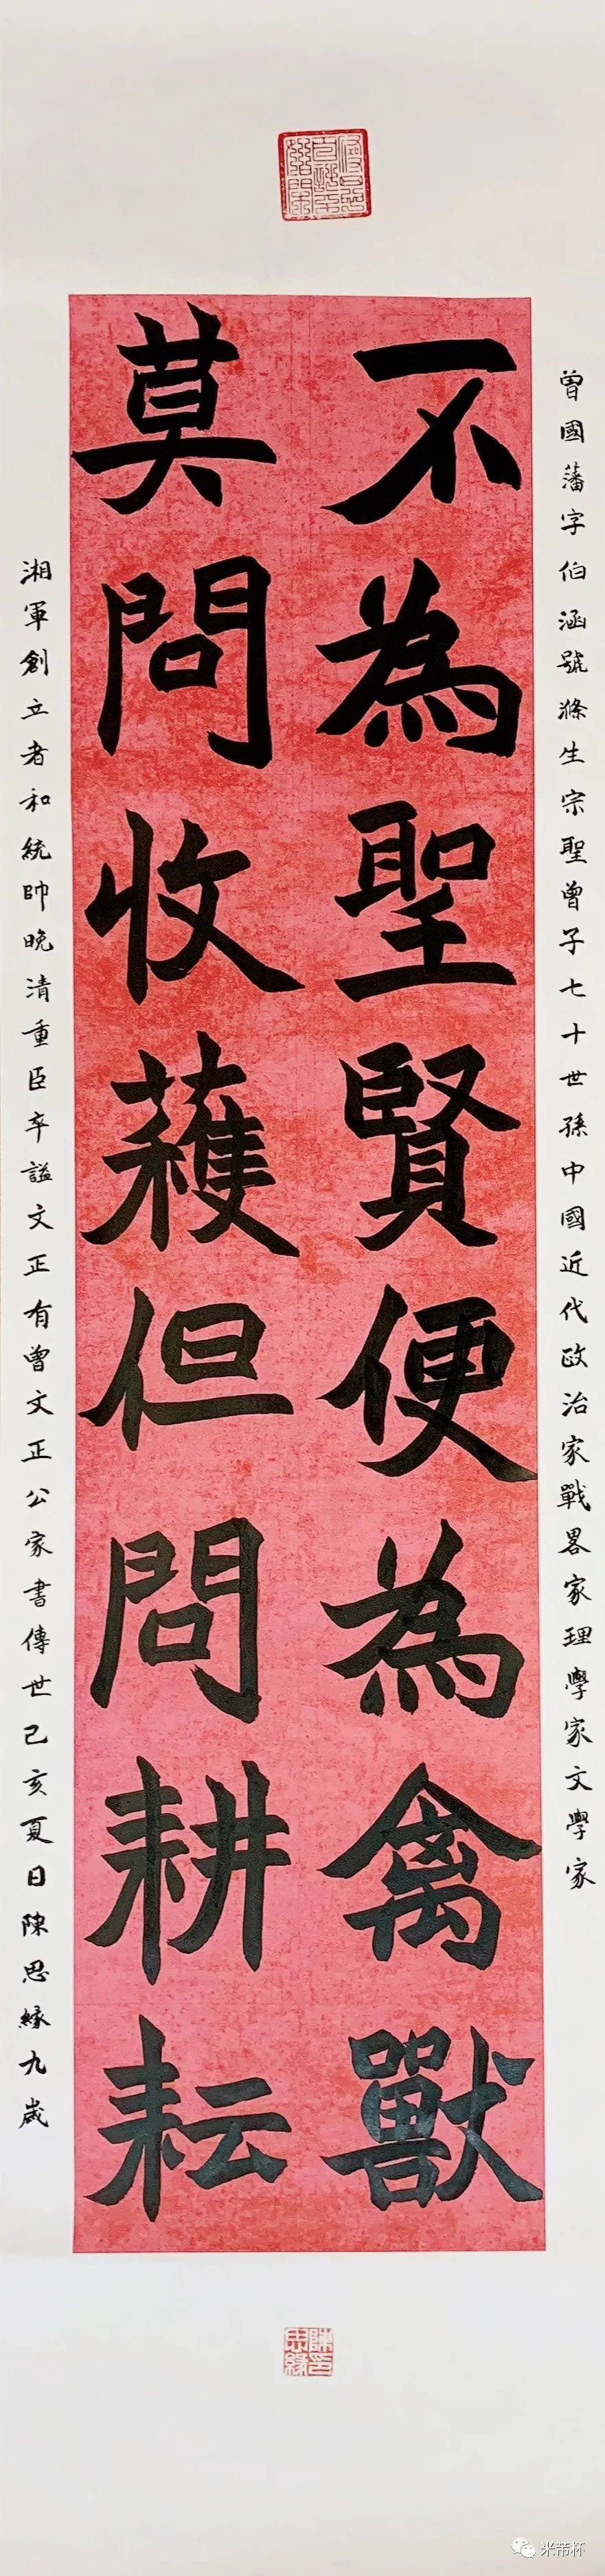 曾國藩字伯涵號滌生宗聖曾子七十世孫中國近代政治家戰畧家理學家文學家
不為聖賢便為禽獸
莫問收蘀但問耕耘
湘軍創立者和統帥晚清重臣卒謚文正有曾文正公家書傳世己亥夏日陳思緣九歲
陳思緣印
米芾杯